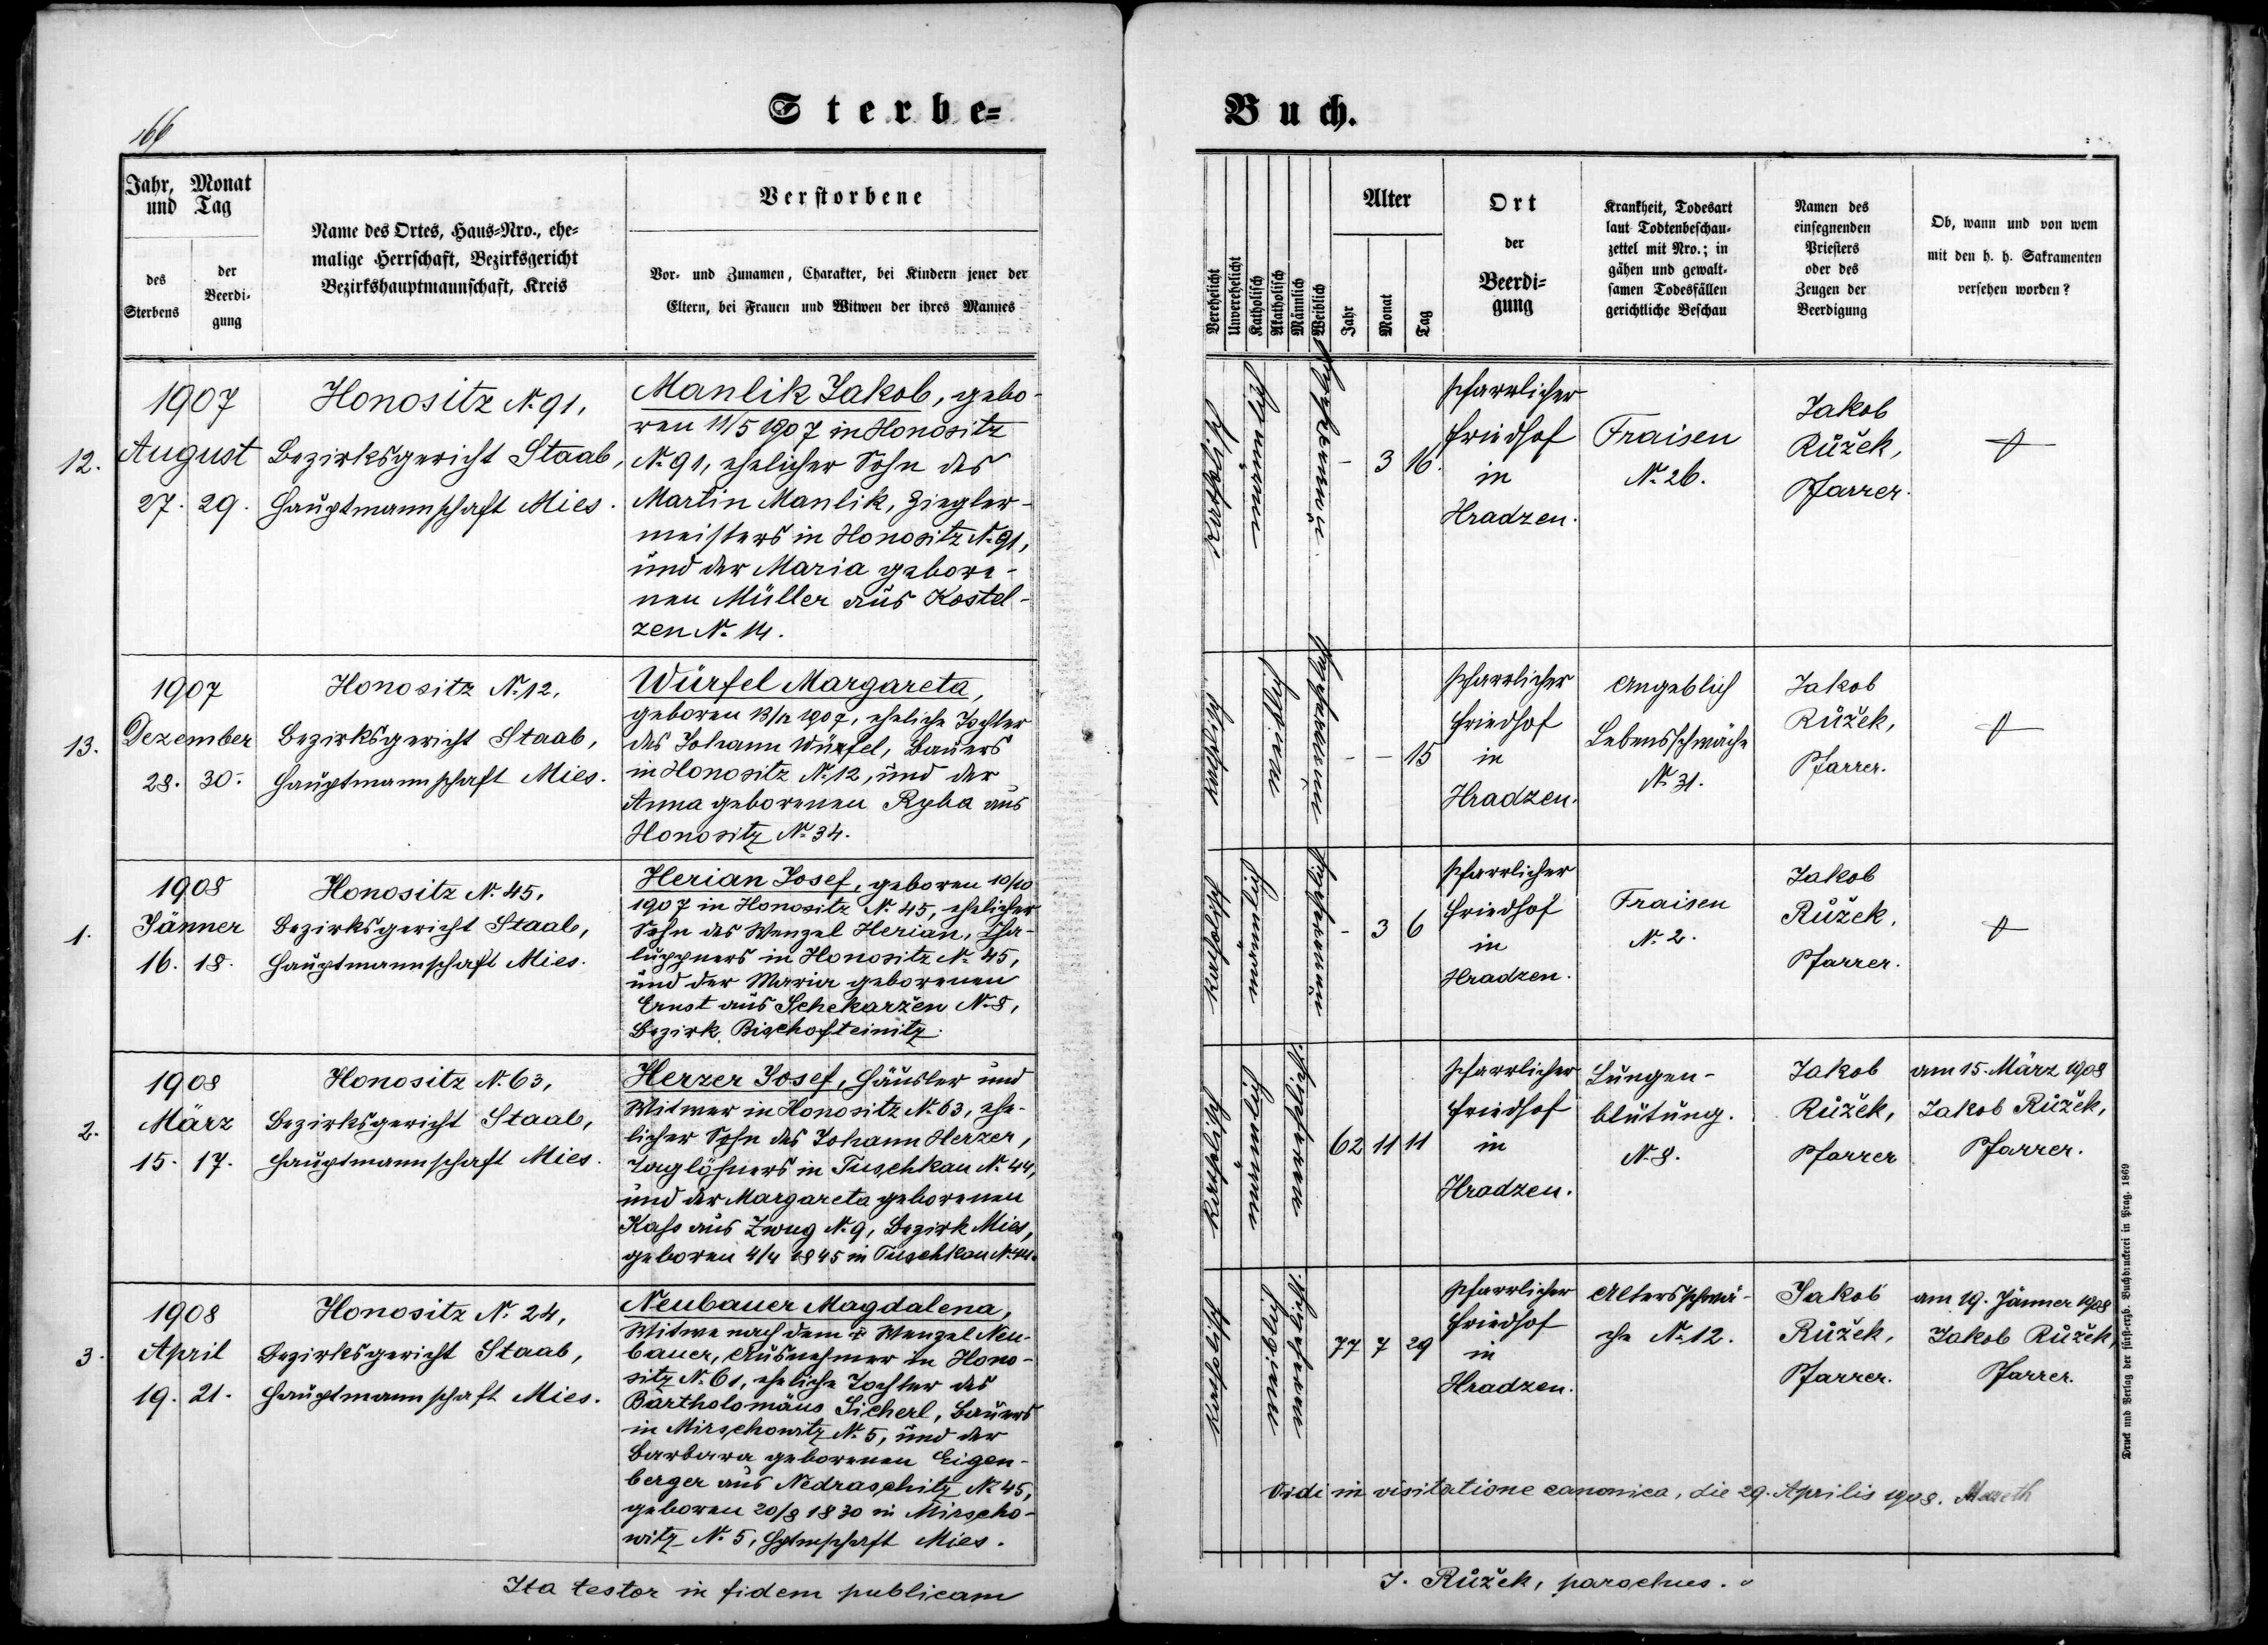 166
Sterbe=
Jahr, Monat und Tag
des Sterbens
der Beerdi-gung
Name des Ortes, Haus=Nro., ehe=
malige Herrschaft, Bezirksgericht
Bezirkshauptmannschaft, Kreis
Verstorbene
Vor= und Zunamen, Charakter, bei Kindern jener der
Eltern, bei Frauen und Witwen der ihres Mannes
12.
1907
August
27. 29.
Honositz N. 91,
Bezirksgericht Staab,
Hauptmannschaft Mies.
Manlik Jakob, gebo-
ren 11/5 1907 in Honositz
N. 91, ehelicher Sohn des
Martin Manlik, Ziegler-
meisters in Honositz N. 91,
und der Maria gebore-
nen Müller aus Kostel-
zen N. 14.
13.
1907
Dezember
28. 30.
Honositz N. 12,
Bezirksgericht Staab,
Hauptmannschaft Mies.
Würfel Margareta,
geboren 13/12 1907, eheliche Tochter
des Johann Würfel, Bauers
in Honositz N. 12, und der
Anna geborenen Ryba aus
Honositz N. 34.
1.
1908
Jänner
16. 18.
Honositz N. 45,
Bezirksgericht Staab,
Hauptmannschaft Mies.
Herian Josef, geboren 10/10
1907 in Honositz N. 45, ehelicher
Sohn des Wenzel Herian, Cha-
luppners in Honositz N. 45,
und der Maria geborenen
Ernst aus Schekaržen N. 8,
Bezirk Bischofteinitz.
2.
1908
März
15. 17.
Honositz N. 63,
Bezirksgericht Staab,
Hauptmannschaft Mies.
Herzer Josef, Häusler und
Witwer in Honositz N. 63, ehe-
licher Sohn des Johann Herzer,
Taglöhners in Tuschkau N. 44,
und der Margareta geborenen
aus Zwug N. 9, Bezirk Mies,
geboren 4/4 1845 in Tuschkau N. 44.
3.
1908
April
19. 21.
Honositz N. 24,
Bezirksgericht Staab,
Hauptmannschaft Mies.
Neubauer Magdalena,
Witwe nach dem † Wenzel Neu-
bauer, Ausnehmer in Hono-
sitz N. 61, eheliche Tochter des
Bartholomäus Sicherl, Bauers
in Mirschowitz N. 5, und der
Barbara geborenen Eigen-
berger aus Nedraschitz N. 45,
geboren 20/8 1830 in Mirscho-
witz N. 5, Hptmschaft Mies.
Ita testor in fidem publicam
Buch.
Verehelicht
Unverehelicht
Katholisch
Akatholisch
Männlich
Weiblich
Alter
Jahr
Monat
Tag
Ort
der
Beerdi=
gung
Krankheit, Todesart
laut Todtenbeschau=
zettel mit Nro.; in
gähen und gewalt=
samen Todesfällen
gerichtliche Beschau
Namen des
einsegnenden
Priesters
oder des
Zeugen der
Beerdigung
Ob, wann und von wem
mit den h. h. Sakramenten
versehen worden?
katholisch männlich unverehelicht
- 3 16.
Pfarrlicher
Friedhof
in
Hradzen.
Fraisen
N. 26.
Jakob
Růžek,
Pfarrer.
katholisch weiblich unverehelicht
- - 15
Pfarrlicher
Friedhof
in
Hradzen.
Angeblich
Lebensschwäche
N. 31.
Jakob
Růžek,
Pfarrer.
katholisch männlich unverehelicht
- 3 6
Pfarrlicher
Friedhof
in
Hradzen.
Fraisen
N. 2.
Jakob
Růžek,
Pfarrer.
katholisch männlich verehelicht.
62 11 11
Pfarrlicher
Friedhof
in
Hradzen.
Lungen-
blutung.
N. 8.
Jakob
Růžek,
Pfarrer
am 15. März 1908
Jakob Růžek,
Pfarrer.
katholisch weiblich verehelicht.
77 7 29
Pfarrlicher
Friedhof
in
Hradzen.
Altersschwä-
che N. 12.
Jakob
Růžek,
Pfarrer.
am 19. Jänner 1908
Jakob Růžek,
Pfarrer.
Vidi in visitatione canonica, die 29. Aprilis 1908.
J. Růžek, parochus.
Druck und Verlag der fürst=erzb. Buchdruckerei in Prag. 1869